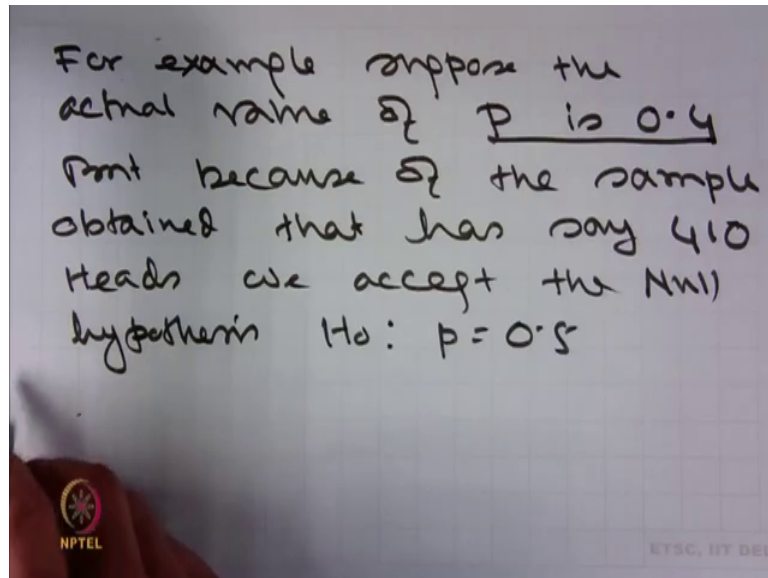 For example suppose the
actual value of p is 0.4
But because of the sample
obtained that has say 410
Heads we accept the Null
hypothesis H0: p = 0.5
NPTEL
ETSC, IIT DEL